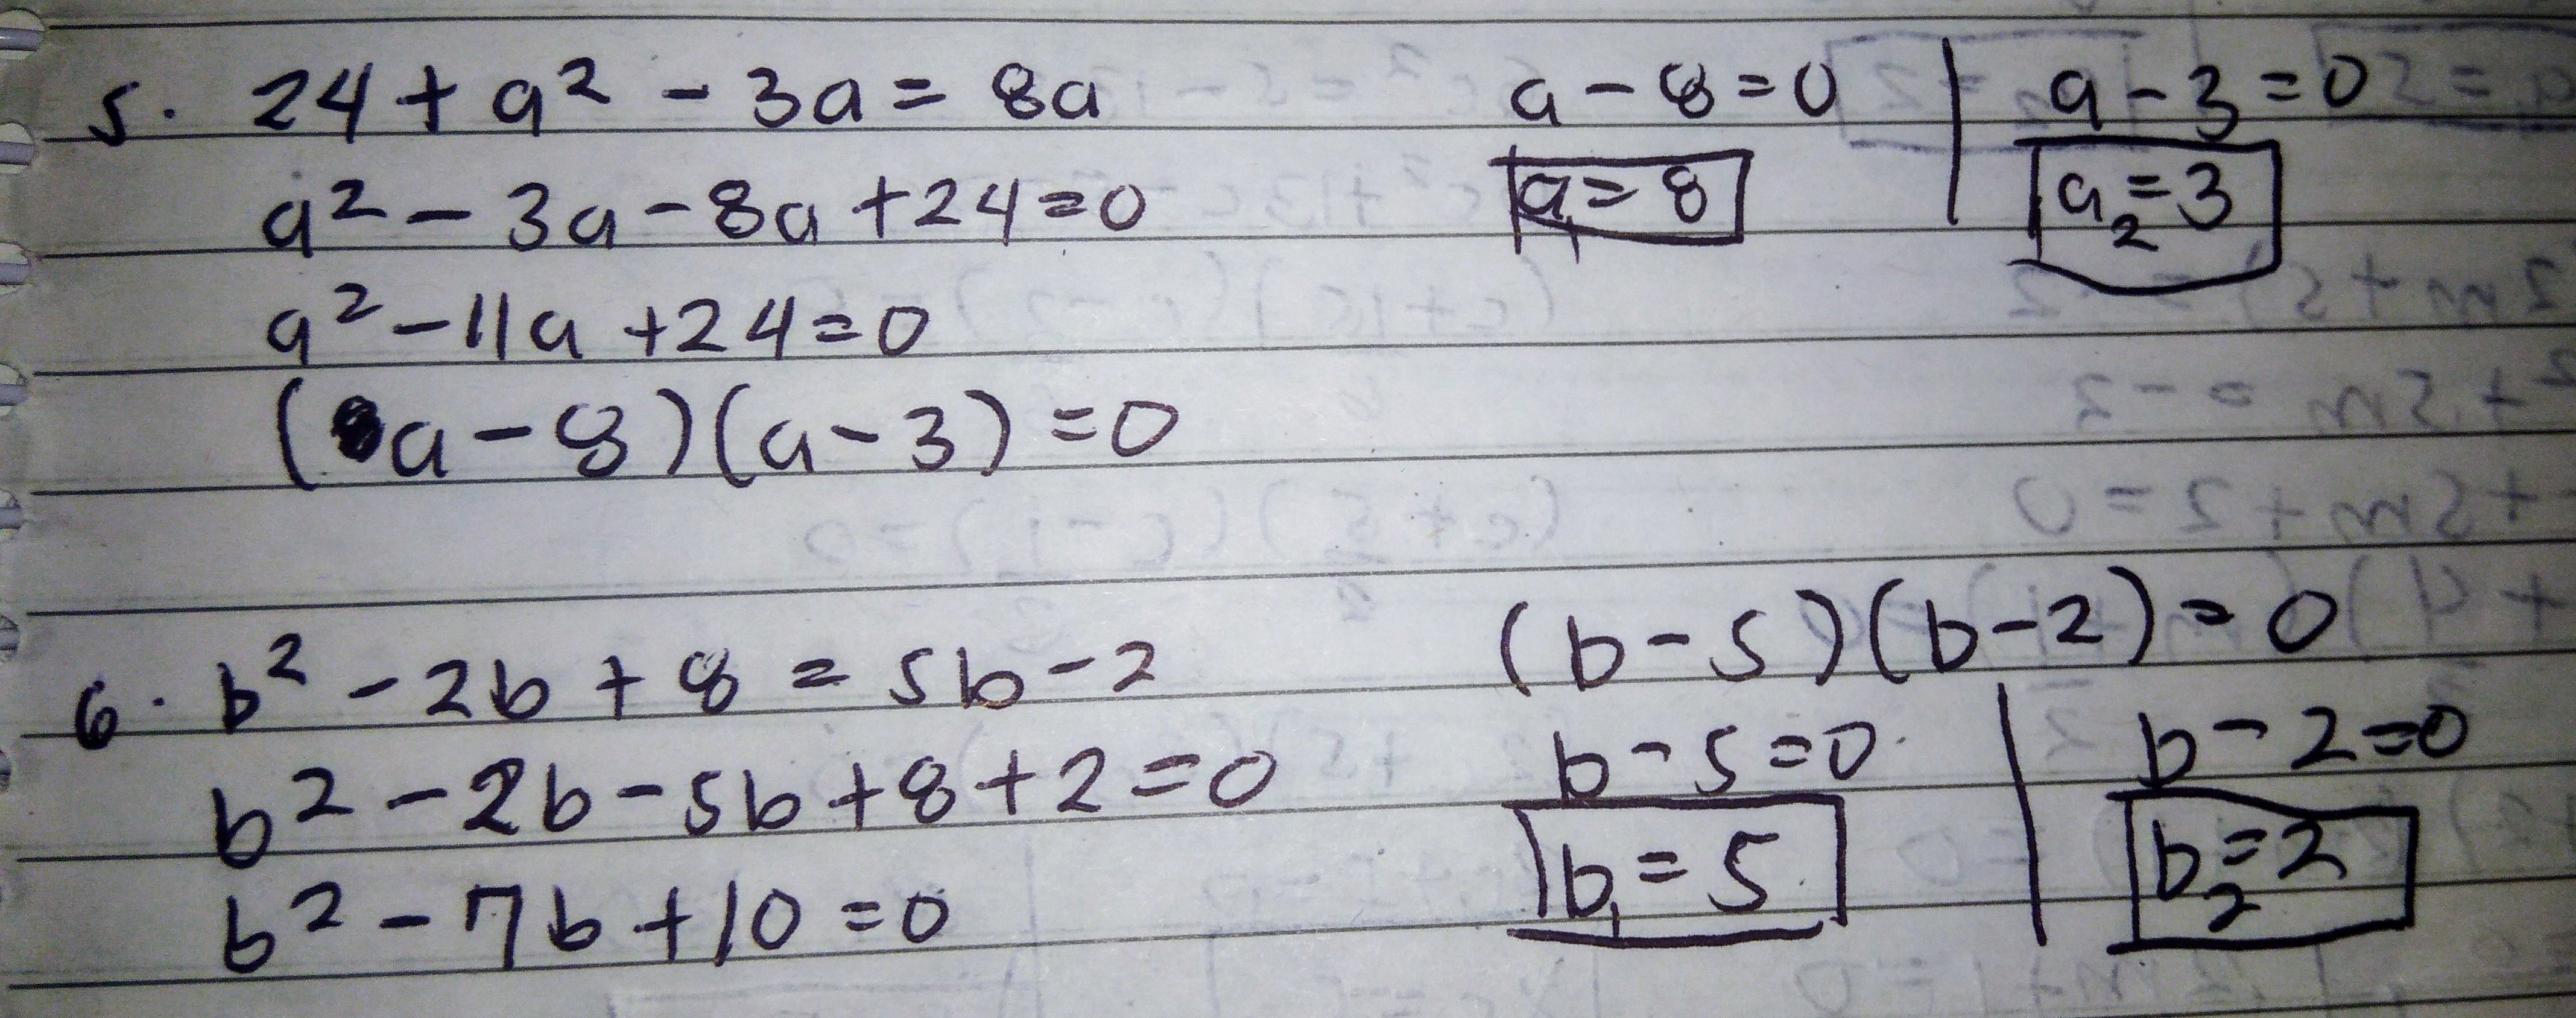 5. 24 + a² - 3a = 8a
a² - 3a - 8a + 24 = 0
a² - 11a + 24 = 0
(a - 8)(a - 3) = 0
a - 8 = 0 | a - 3 = 0
a₁ = 8 | a₂ = 3
6. b² - 2b + 8 = 5b - 2
b² - 2b - 5b + 8 + 2 = 0
b² - 7b + 10 = 0
(b - 5)(b - 2) = 0
b - 5 = 0 | b - 2 = 0
b₁ = 5 | b₂ = 2